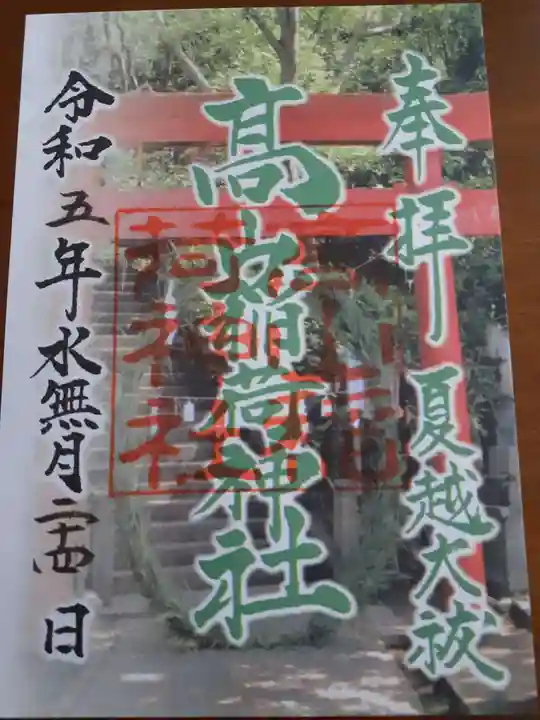 奉拝 夏越大祓
髙山稲荷神社
令和五年水無月二十四日